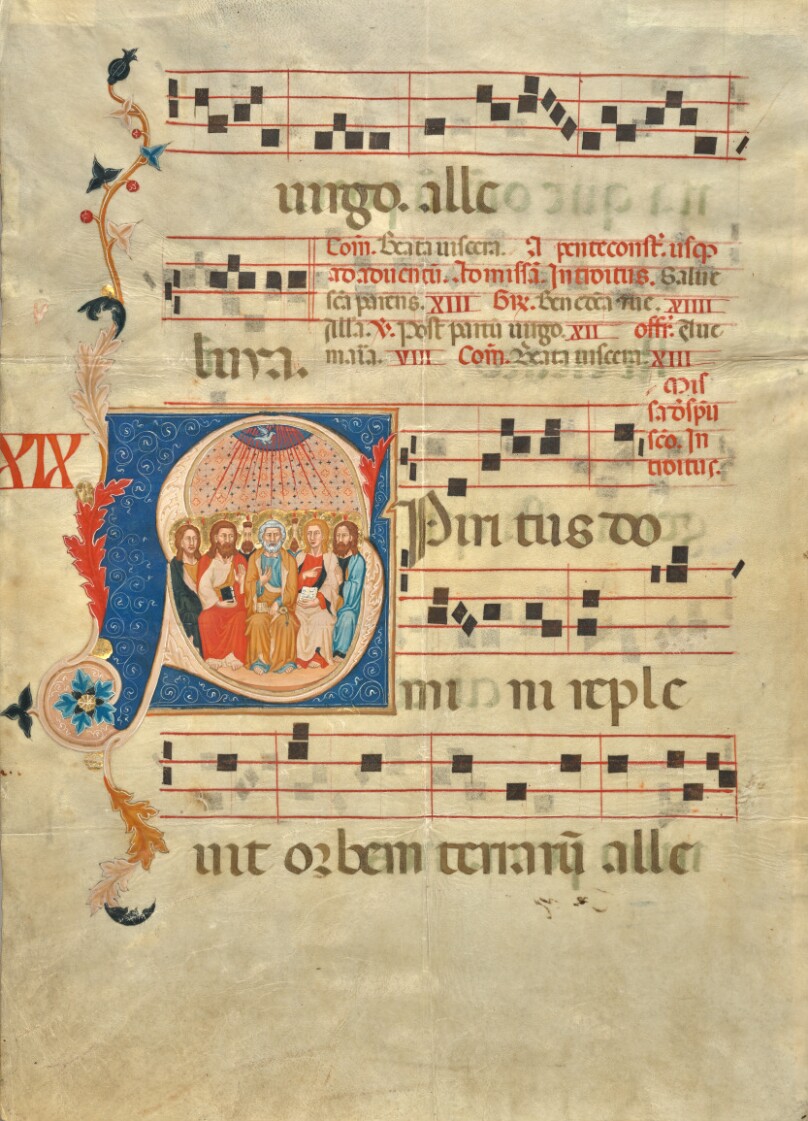 uirgo. alle
Com̄. Beata uiscera. A penteconst̄. usq
ad aduentū. Ad missā. Introitus. Salue
sc̄a parens. XIII Gr̄. Benedc̄a tue. XIIII
Alla. V̄. Post partū uirgo. XII offr̄. Aue
luya. maīa. VIII Com̄. Beata uiscera. XIII
Mis
sa d̄ sp̄u
sc̄o. In
troitus.
XIX
Spiri tus do
mi ni reple
uit orbem terrarū alle